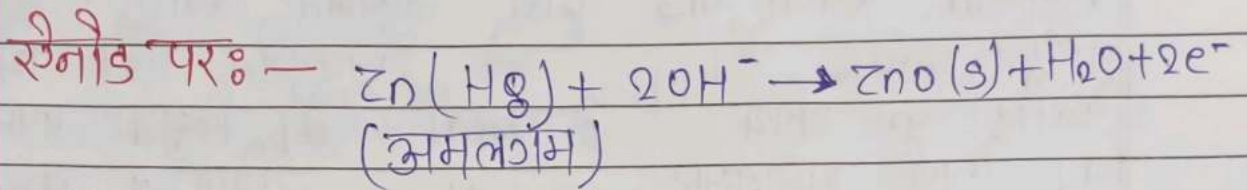 ऐनोड पर:— Zn(Hg) + 2OH⁻ → ZnO(s) + H₂O + 2e⁻
(अमलगम)